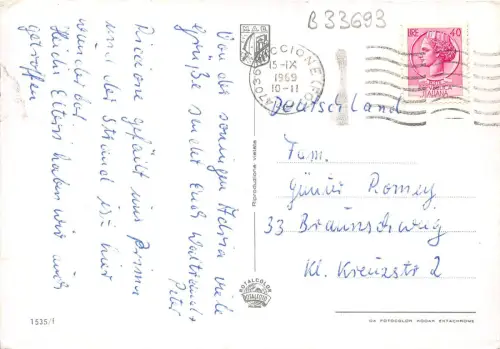 B 33693
Von der sonnigen Adria viele
Grüße sendet Euch Waltraud +
Peter
Riccione gefällt uns prima
und der Strand ist hier
wunderbar.
Heidis Eltern haben wir auch
getroffen
RICCIONE (FO)
47036
15-IX
1969
10-11
LIRE 40
REPUBBLICA
ITALIANA
Deutschland
Fam.
Günter Romey
33 Braunschweig
Kl. Kreuzstr 2
Riproduzione vietata
ROTALCOLOR
ROTALFOTO
1535/f
DA FOTOCOLOR KODAK EKTACHROME